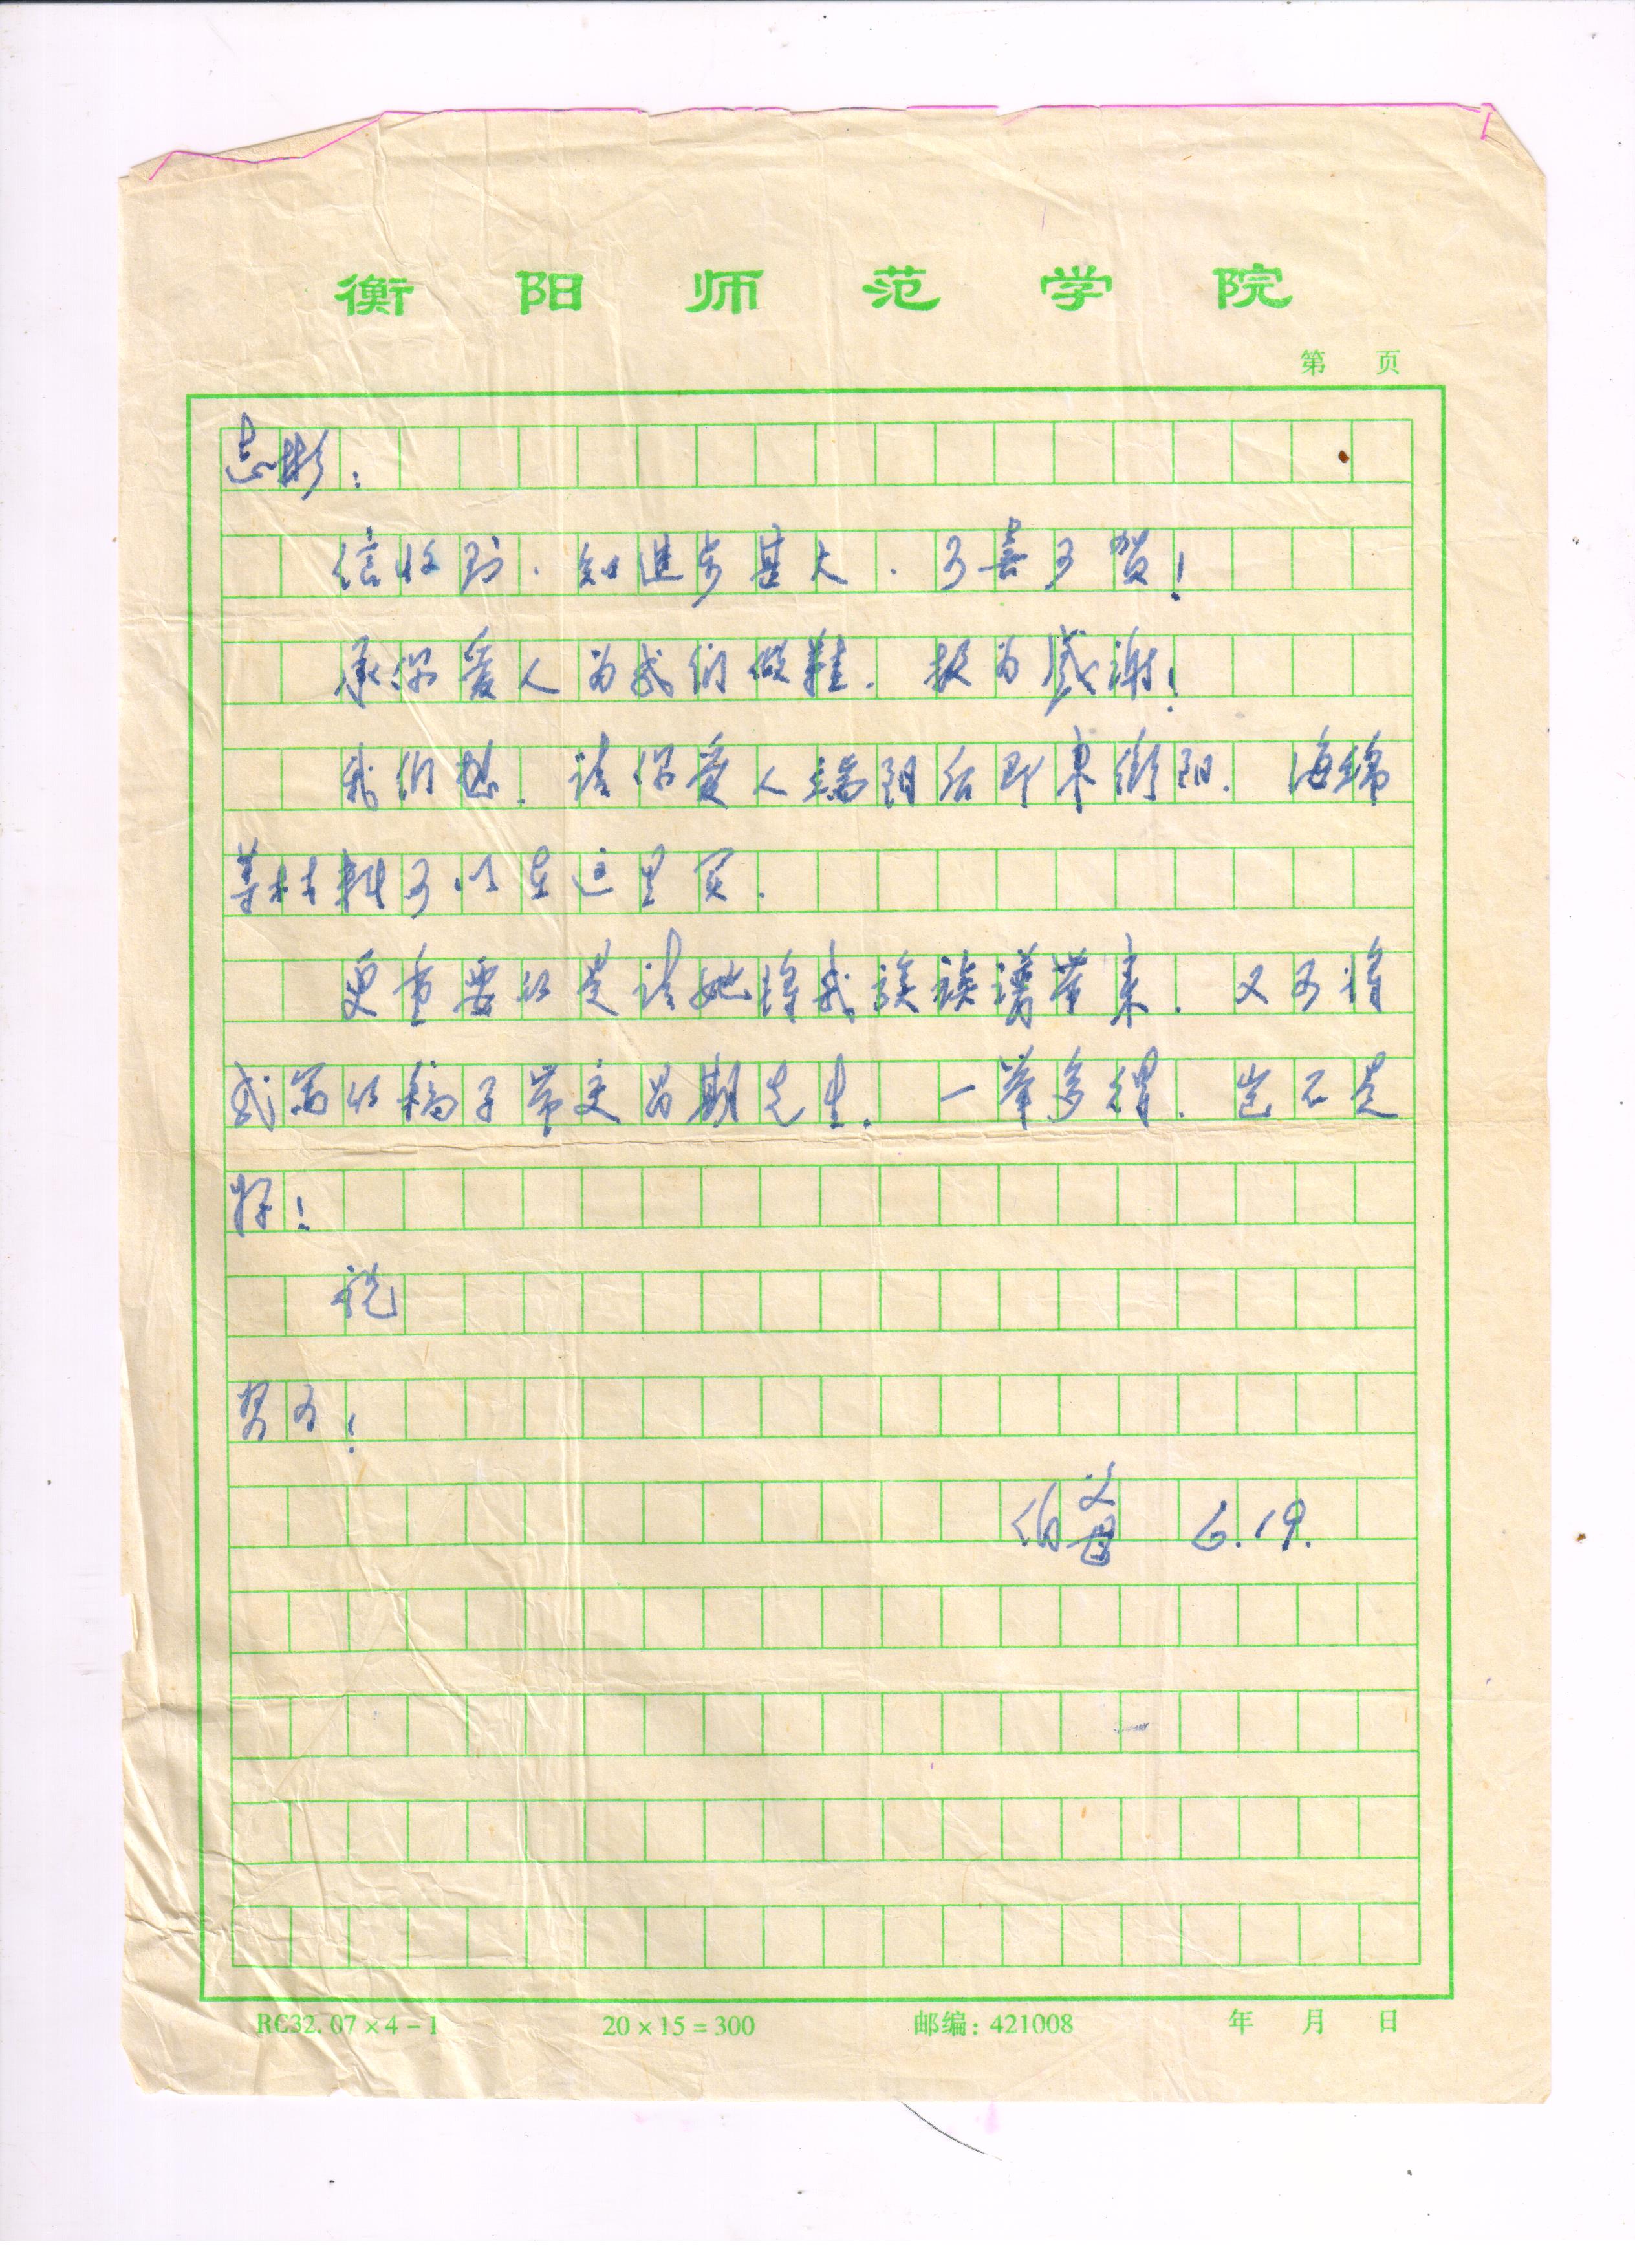 衡阳师范学院
第 页
志彬：
信收到．知进步甚大．可喜可贺！
承你爱人为我们做鞋．极为感谢！
我们想．请你爱人端阳后即来衡阳．海绵
等材料可以在这里买．
更重要的是请她将我族族谱带来．又可将
我写的稿子带交昌期先生．一举多得．岂不是
好！
祝
努力！
伯父母 6.19.
RC32.07×4-1 20×15=300 邮编：421008 年 月 日